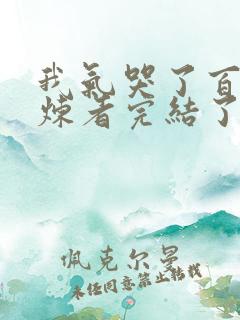 我氣哭了百
煉者完結了
佩克尔曼
未经同意禁止转载